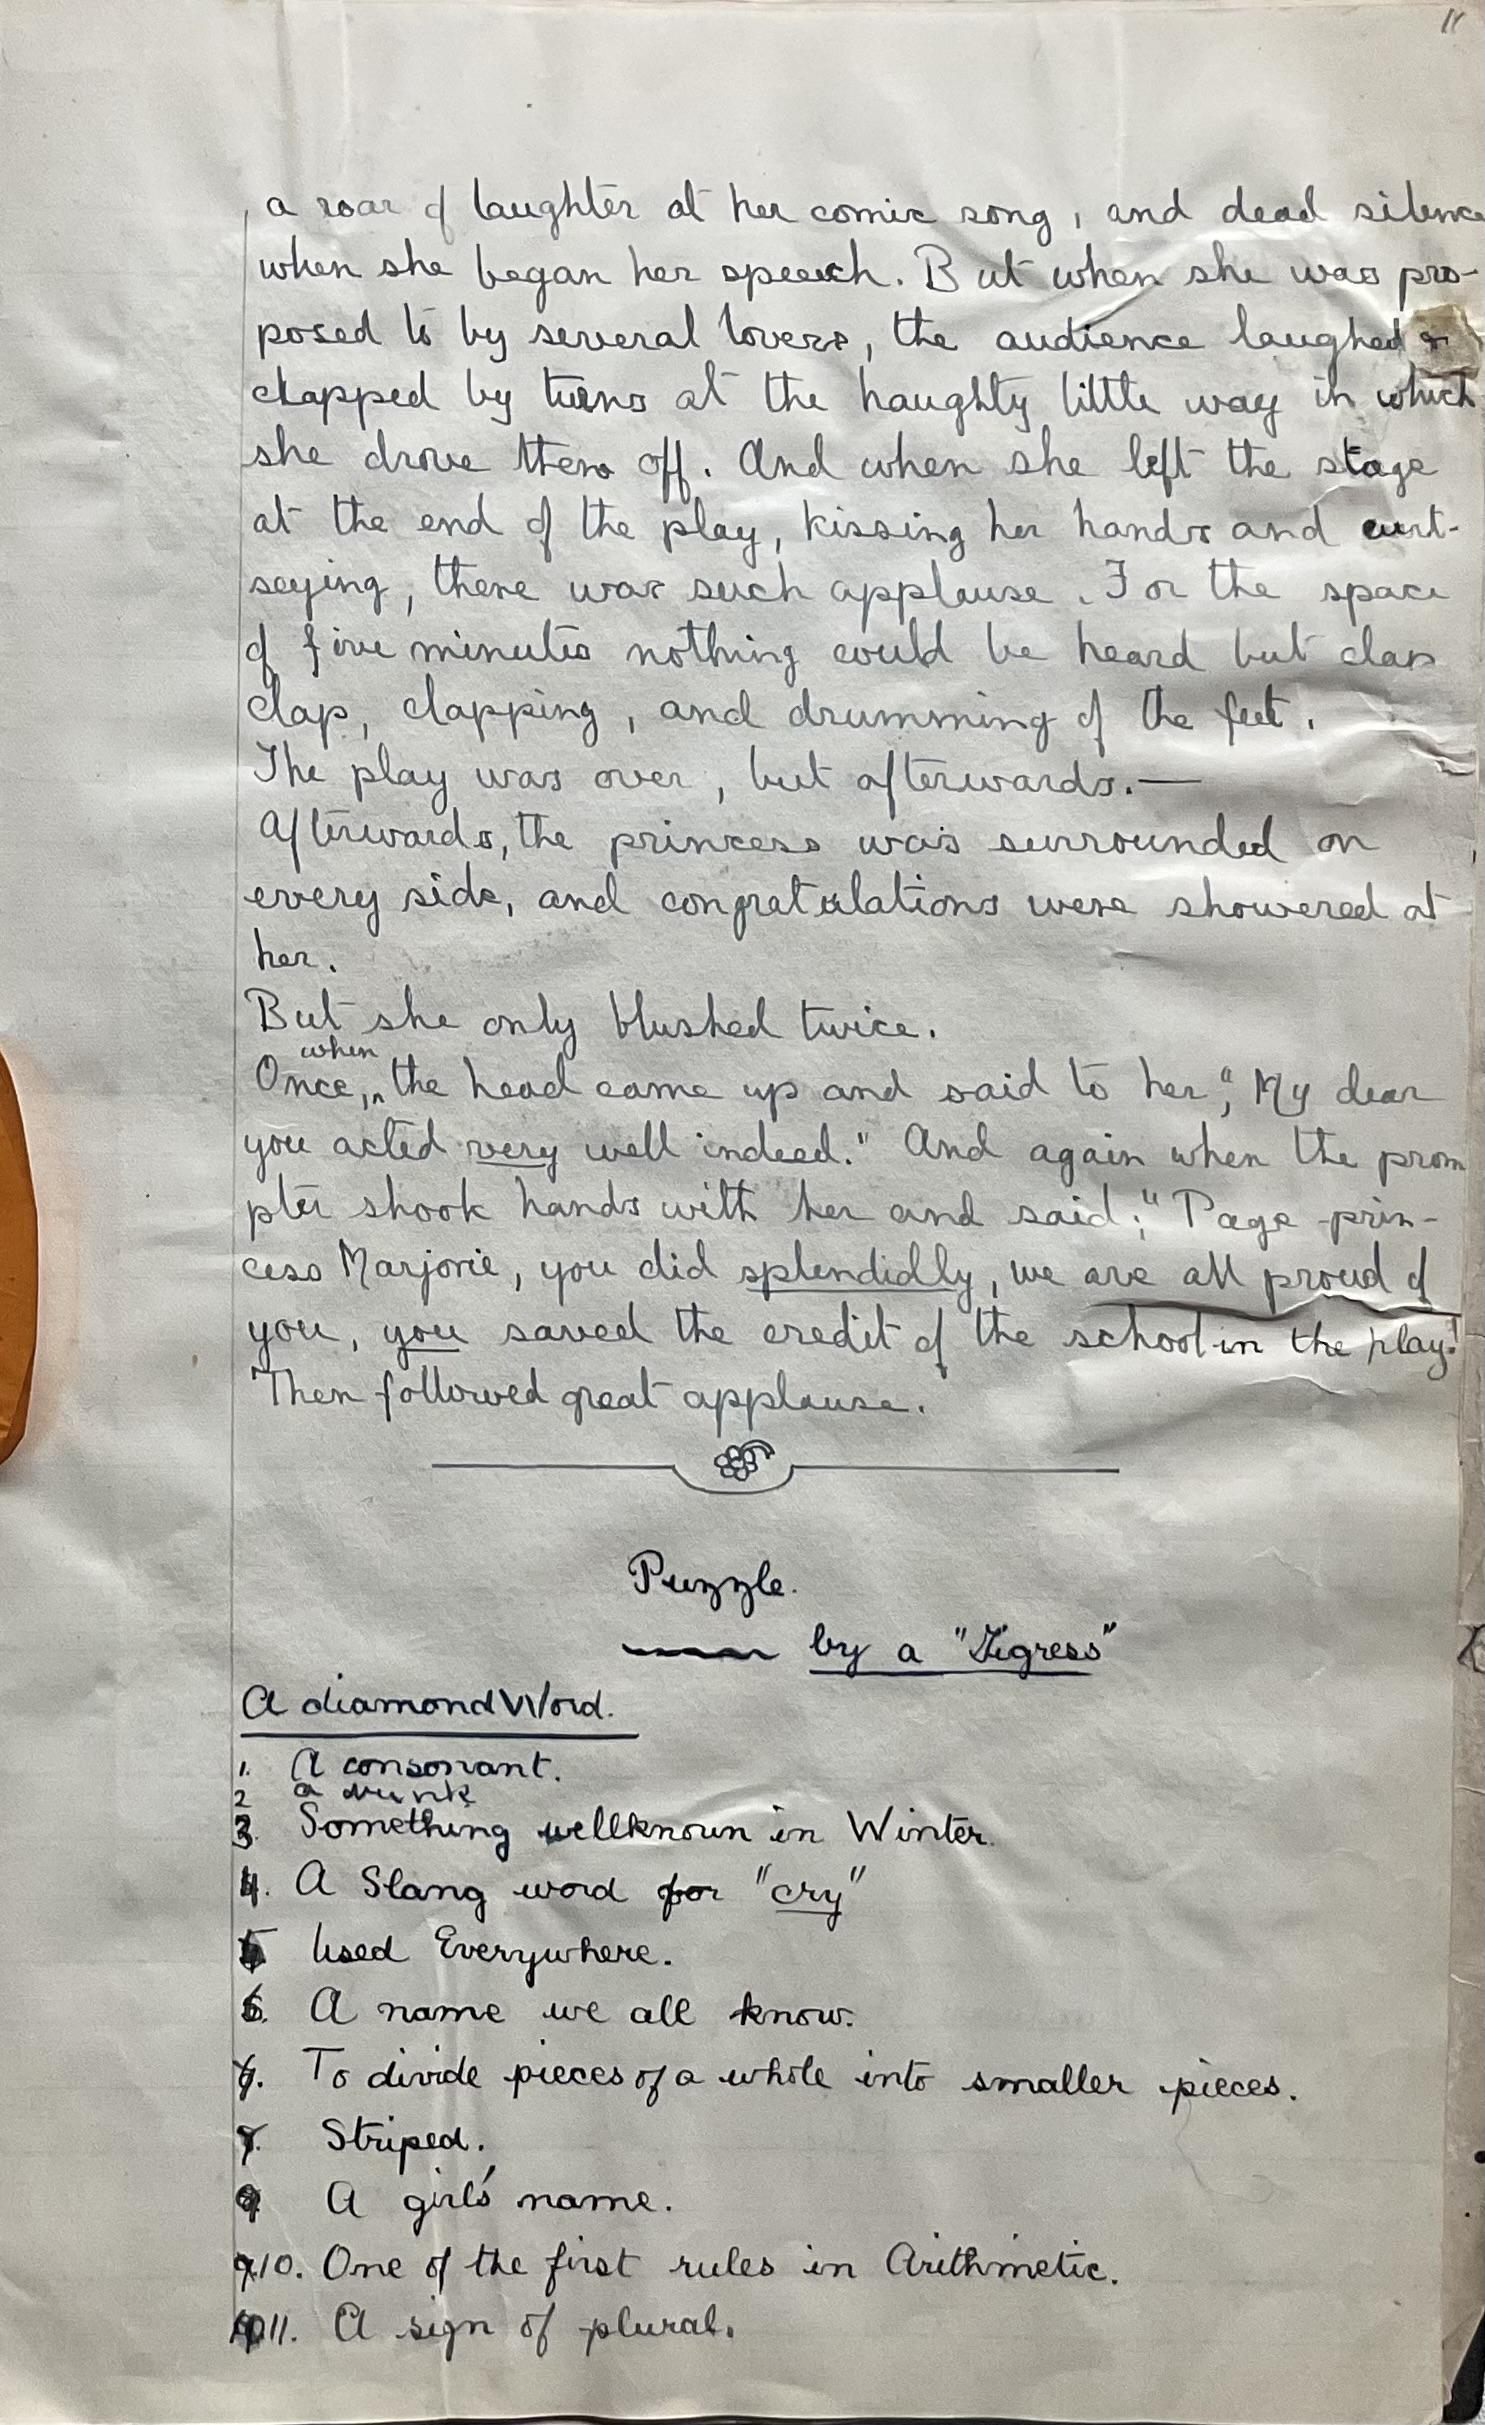 11
a roar of laughter at her comic song, and dead silence
when she began her speech. But when she was pro-
posed to by several lovers, the audience laughed &
clapped by turns at the haughty little way in which
she drove them off. And when she left the stage
at the end of the play, kissing her hands and curt-
seying, there was such applause. For the space
of five minutes nothing could be heard but clap
clap, clapping, and drumming of the feet.
The play was over, but afterwards.—
Afterwards, the princess was surrounded on
every side, and congratulations were showered at
her.
But she only blushed twice.
Once, when the head came up and said to her, "My dear
you acted very well indeed." And again when the prom
pter shook hands with her and said; "Page-prin-
cess Marjorie, you did splendidly, we are all proud of
you, you saved the credit of the school in the play!
Then followed great applause.
Puzzle.
by a "Tigress"
A diamond Word.
1. A consonant.
2 a drink
3. Something wellknown in Winter.
4. A Slang word for "cry"
5 Used Everywhere.
6. A name we all know.
7. To divide pieces of a whole into smaller pieces.
8. Striped.
9 A girl's name.
10. One of the first rules in Arithmetic.
11. A sign of plural.